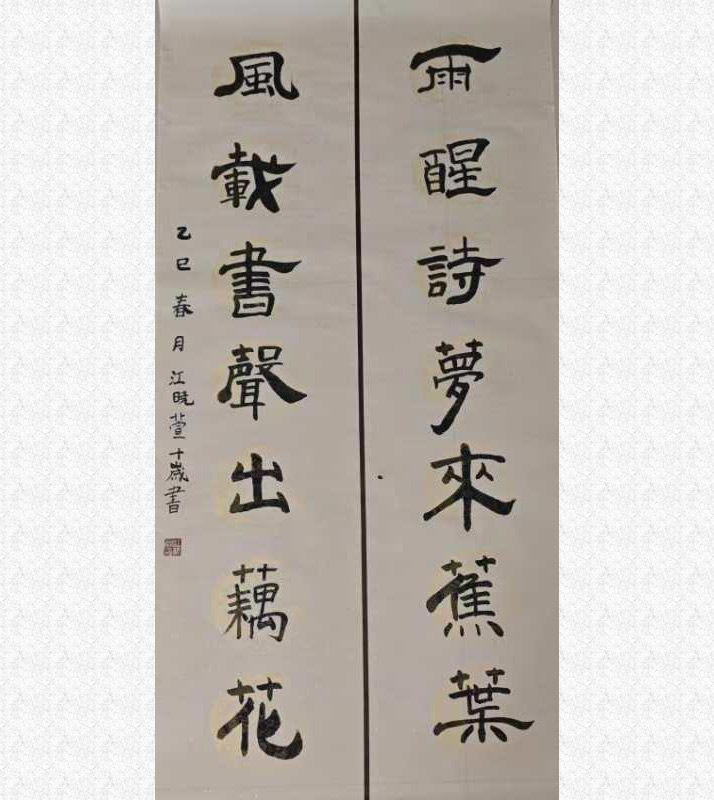 雨醒詩夢來蕉葉
風載書聲出藕花
乙巳春月江晓萱十歲書